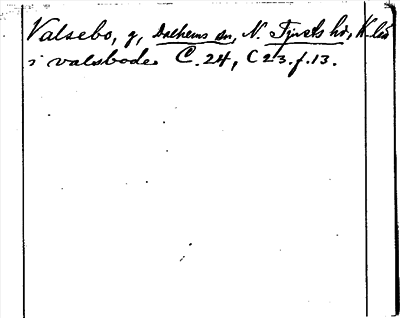 Valsebo, g, Dalhems sn, N. Tjusts hd, K. län
i valsbode C. 24, C 23. f. 13.